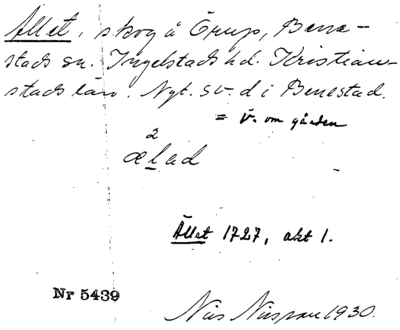 Ället, skog å Örup, Bene-
stads sn. Ingelstads hd. Kristian-
stads län. Nyt. sv. d i Benestad.
= V. om gården
2
ælad
Ället 1727, akt 1.
Nr 5439
Nils Nilsson 1930.